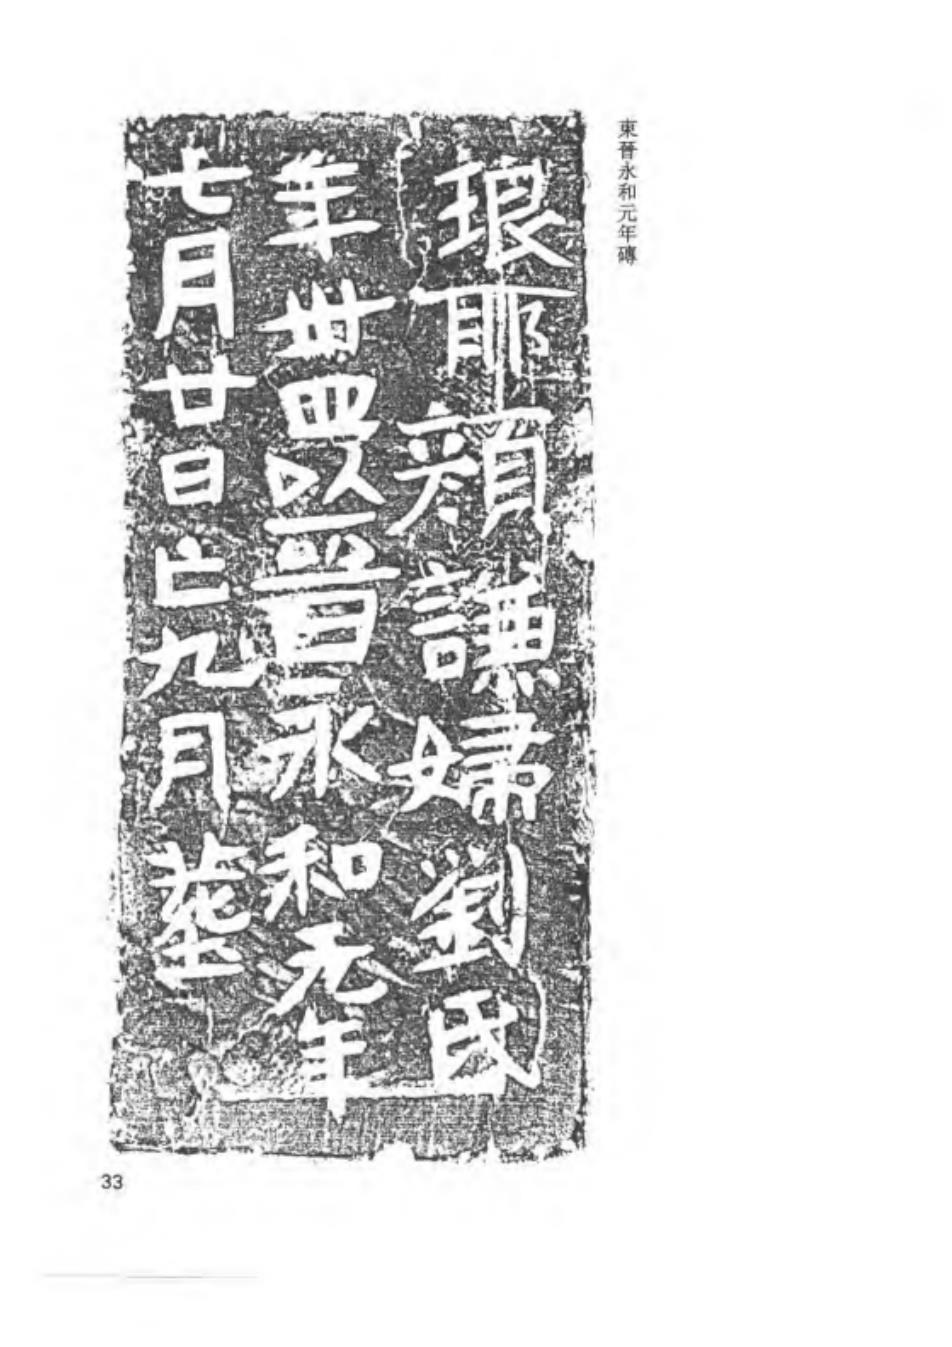 東晉永和元年磚
琅耶顏謙婦劉氏
年卅四以晉永和元年
七月廿日亡九月葬
33